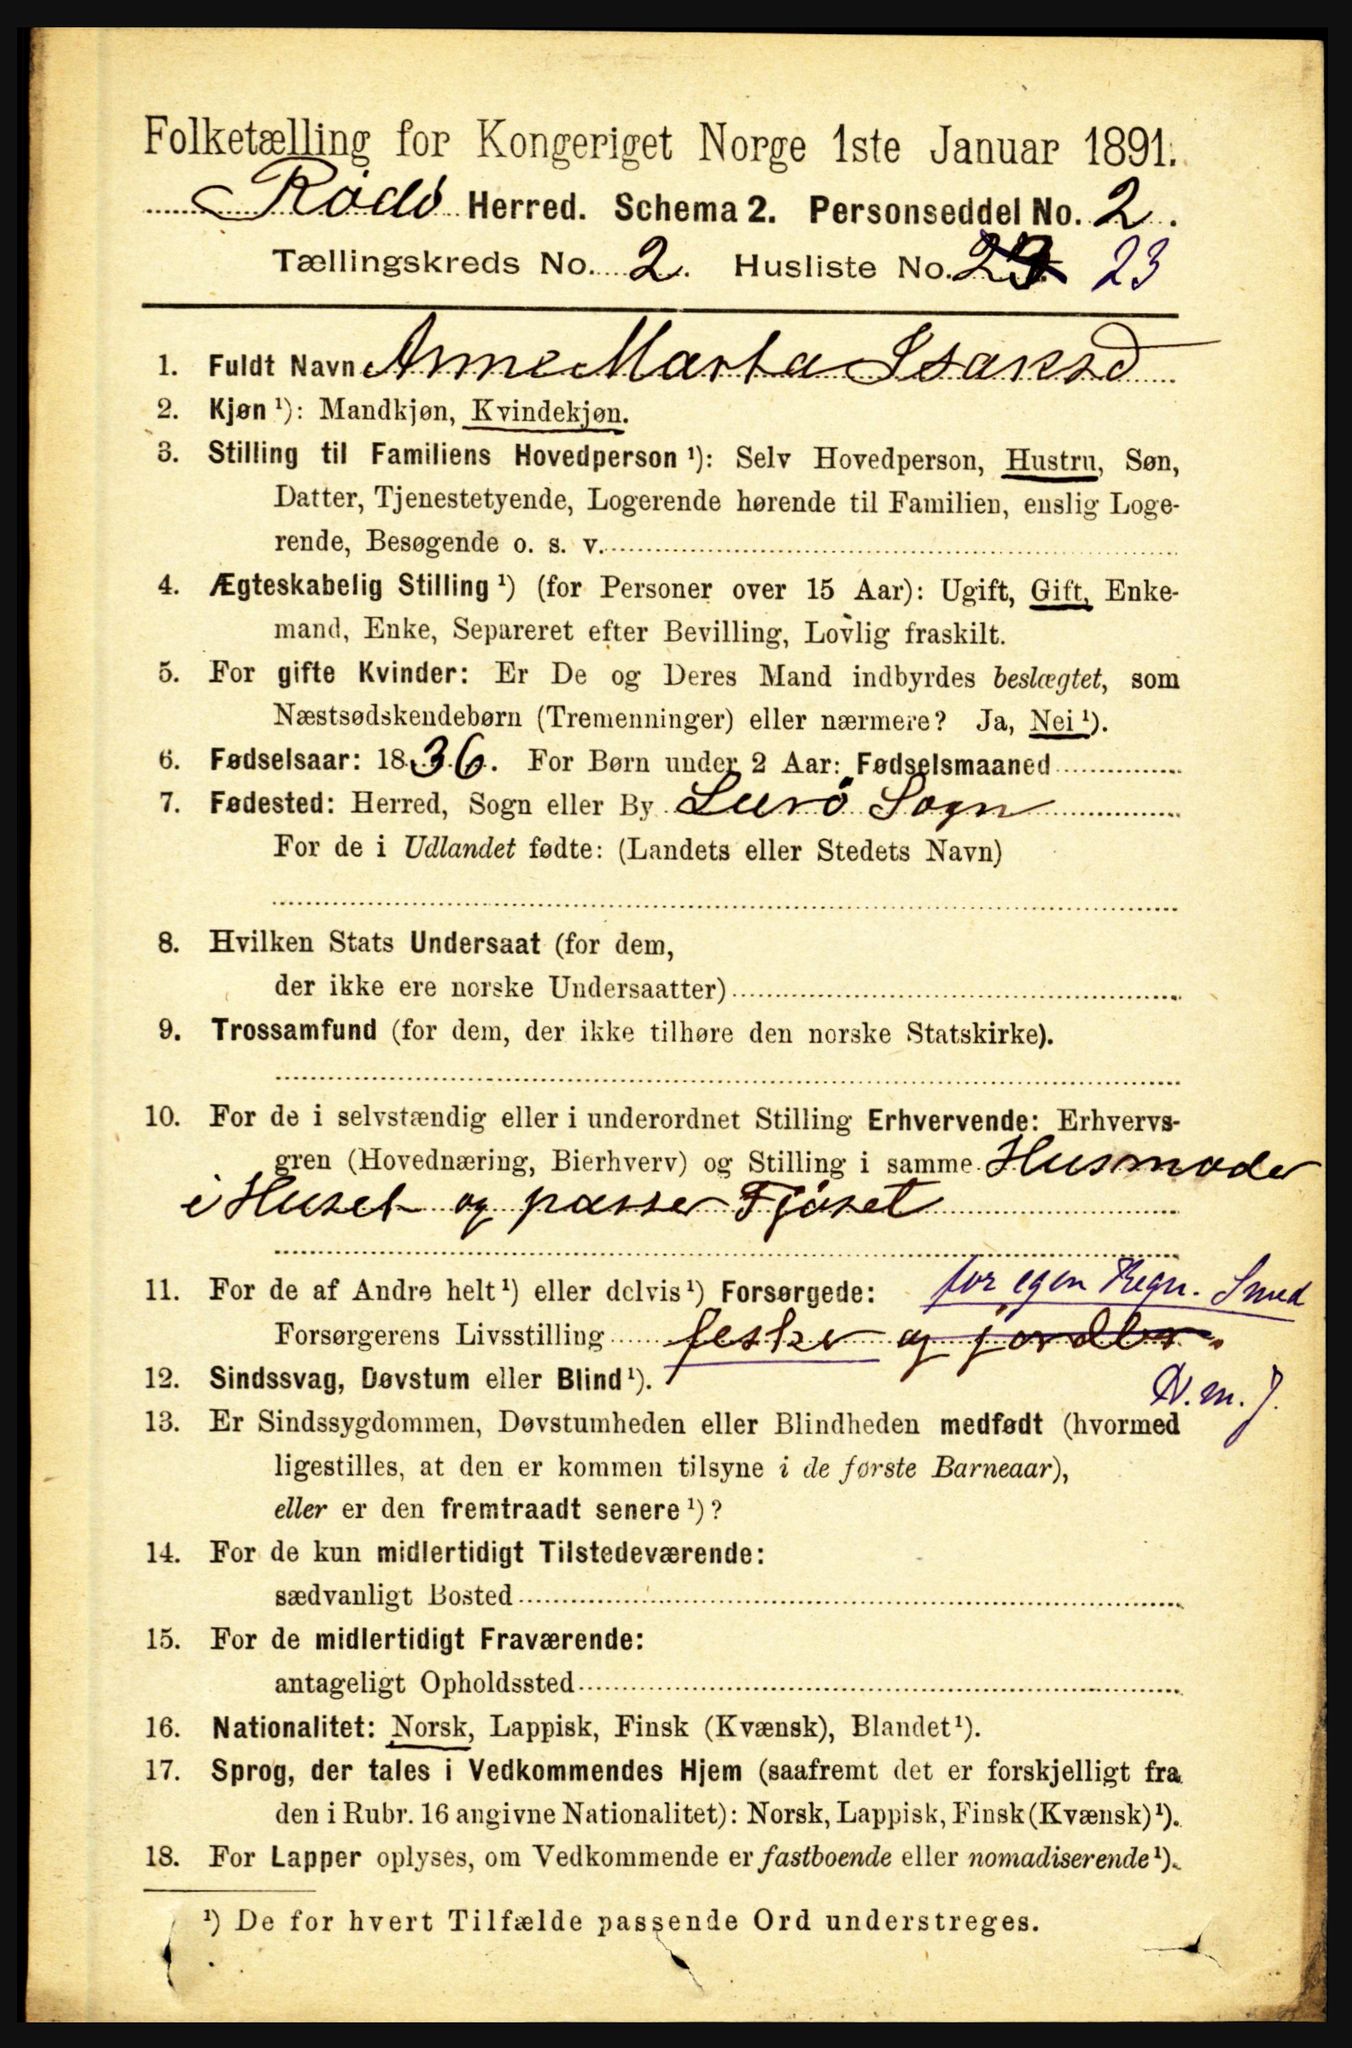 Folketælling for Kongeriget Norge 1ste Januar 1891.
Rödö Herred. Schema 2. Personseddel No. 2.
Tællingskreds No. 2. Husliste No. 23
1. Fuldt Navn Anne Marta Isaksd
2. Kjøn ¹): Mandkjøn, Kvindekjøn.
3. Stilling til Familiens Hovedperson ¹): Selv Hovedperson, Hustru, Søn,
Datter, Tjenestetyende, Logerende hørende til Familien, enslig Loge-
rende, Besøgende o. s. v.
4. Ægteskabelig Stilling ¹) (for Personer over 15 Aar): Ugift, Gift, Enke-
mand, Enke, Separeret efter Bevilling, Lovlig fraskilt.
5. For gifte Kvinder: Er De og Deres Mand indbyrdes beslægtet, som
Næstsødskendebørn (Tremenninger) eller nærmere? Ja, Nei ¹).
6. Fødselsaar: 1836. For Børn under 2 Aar: Fødselsmaaned
7. Fødested: Herred, Sogn eller By Lurö Sogn
For de i Udlandet fødte: (Landets eller Stedets Navn)
8. Hvilken Stats Undersaat (for dem,
der ikke ere norske Undersaatter)
9. Trossamfund (for dem, der ikke tilhøre den norske Statskirke).
10. For de i selvstændig eller i underordnet Stilling Erhvervende: Erhvervs-
gren (Hovednæring, Bierhverv) og Stilling i samme Husmoder
i Huset og passer Fjöset
11. For de af Andre helt ¹) eller delvis ¹) Forsørgede: for egen Regn. Smed
Forsørgerens Livsstilling fesker og jordbr.
12. Sindssvag, Døvstum eller Blind ¹).
N. m. J.
13. Er Sindssygdommen, Døvstumheden eller Blindheden medfødt (hvormed
ligestilles, at den er kommen tilsyne i de første Barneaar),
eller er den fremtraadt senere ¹)?
14. For de kun midlertidigt Tilstedeværende:
sædvanligt Bosted
15. For de midlertidigt Fraværende:
antageligt Opholdssted
16. Nationalitet: Norsk, Lappisk, Finsk (Kvænsk), Blandet ¹).
17. Sprog, der tales i Vedkommendes Hjem (saafremt det er forskjelligt fra
den i Rubr. 16 angivne Nationalitet): Norsk, Lappisk, Finsk (Kvænsk) ¹).
18. For Lapper oplyses, om Vedkommende er fastboende eller nomadiserende ¹).
¹) De for hvert Tilfælde passende Ord understreges.